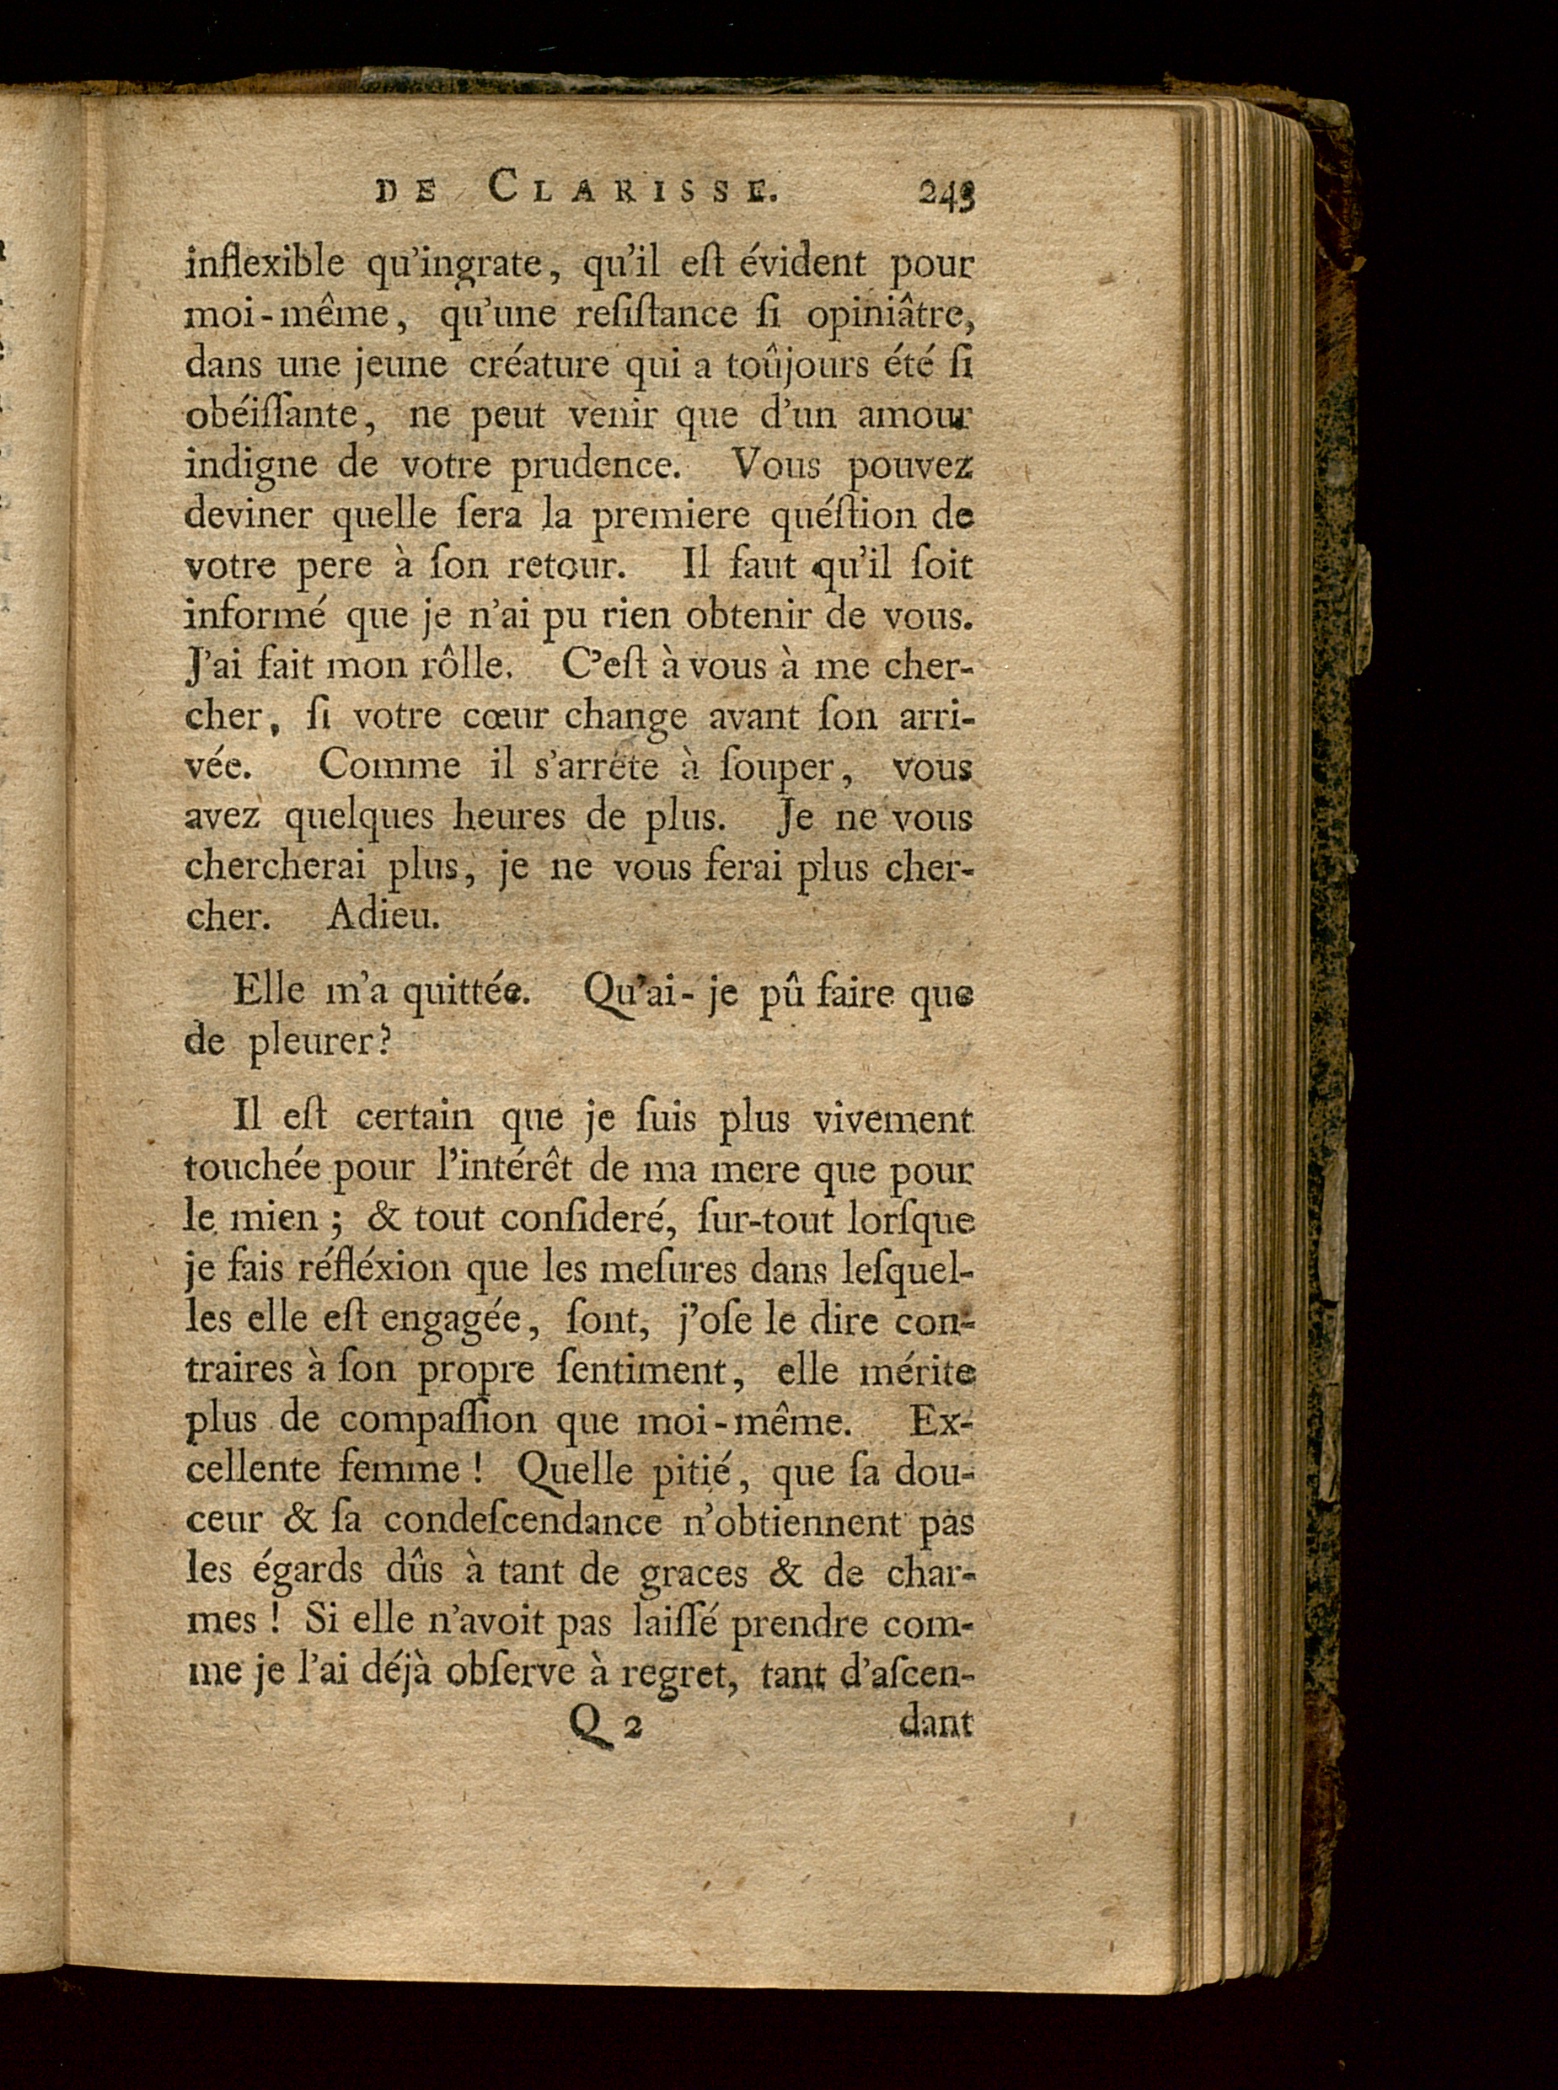 DE CLARISSE. 243
inflexible qu'ingrate, qu'il eſt évident pour
moi-même, qu'une reſiſtance ſi opiniâtre,
dans une jeune créature qui a toûjours été ſi
obéiſſante, ne peut venir que d'un amour
indigne de votre prudence. Vous pouvez
deviner quelle ſera la premiere quéſtion de
votre pere à ſon retour. Il faut qu'il ſoit
informé que je n'ai pu rien obtenir de vous.
J'ai fait mon rôlle. C'eſt à vous à me cher-
cher, ſi votre cœur change avant ſon arri-
vée. Comme il s'arrête à ſouper, vous
avez quelques heures de plus. Je ne vous
chercherai plus, je ne vous ferai plus cher-
cher. Adieu.
Elle m'a quittée. Qu'ai-je pû faire que
de pleurer?
Il eſt certain que je ſuis plus vivement
touchée pour l'intérêt de ma mere que pour
le mien ; & tout conſideré, ſur-tout lorſque
je fais réfléxion que les meſures dans leſquel-
les elle eſt engagée, ſont, j'oſe le dire con-
traires à ſon propre ſentiment, elle mérite
plus de compaſſion que moi-même. Ex-
cellente femme ! Quelle pitié, que ſa dou-
ceur & ſa condeſcendance n'obtiennent pas
les égards dûs à tant de graces & de char-
mes ! Si elle n'avoit pas laiſſé prendre com-
me je l'ai déjà obſerve à regret, tant d'aſcen-
Q 2 dant